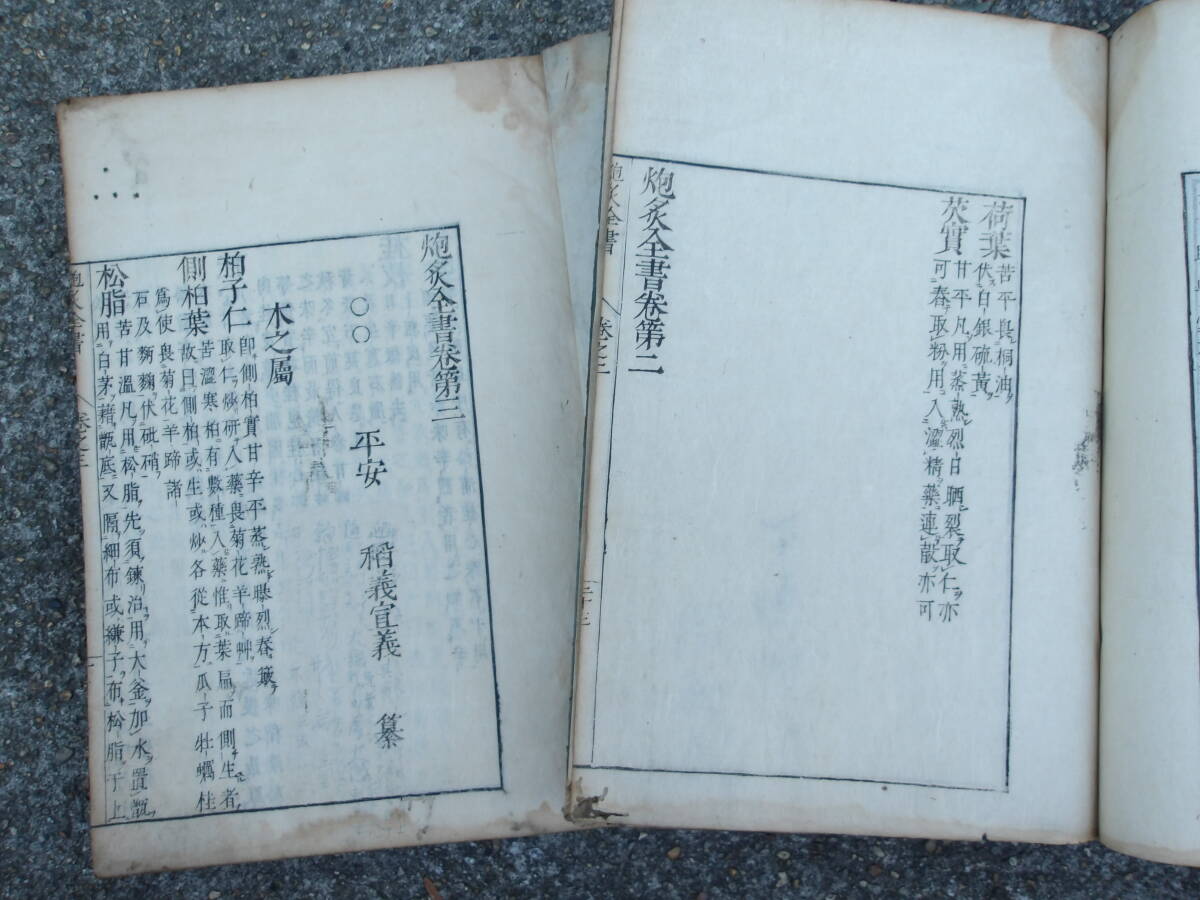 荷葉苦平畏桐油
伏白銀硫黃
芡實甘平凡用蒸熟烈日晒裂取仁亦
可舂取粉用入澀精藥連殼亦可
炮炙全書卷第二
炮炙全書
炮炙全書卷第三
○○平安 稻義宣義 纂
木之屬
柏子仁卽側柏實甘辛平蒸熟曝烈舂簸
取仁炒硏入藥畏菊花羊蹄艸
側柏葉苦澀寒柏有數種入藥惟取葉扁而側生者
故曰側柏或生或炒各從本方瓜子牡蠣桂
爲使畏菊花羊蹄諸
石及麪麴伏砒硝
松脂苦甘溫凡用松脂先須鍊治用大釜加水置甑
用白茅藉甑底又隔細布或縑子布松脂于上
炮炙全書 卷之三